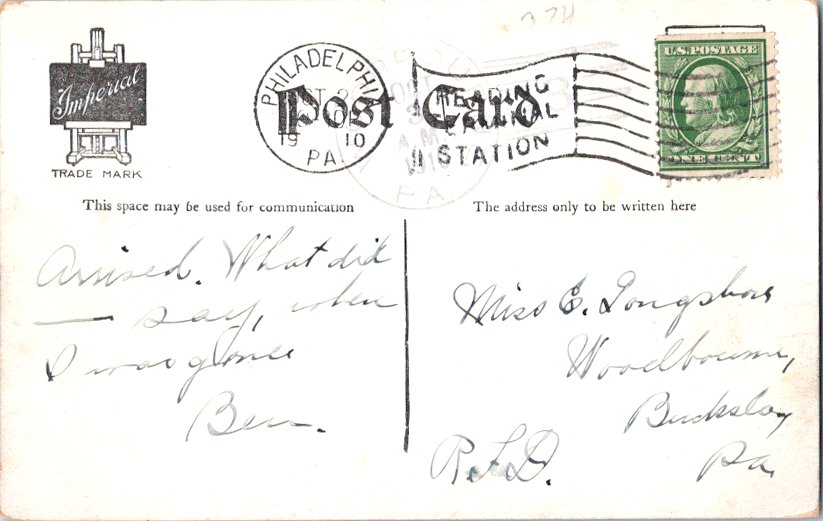 Imperial
TRADE MARK
PHILADELPHIA
OCT 2
19 10
PA.
READING TERMINAL STATION
Post Card
A.M.
1910
PA
374
U.S. POSTAGE
ONE CENT
This space may be used for communication
The address only to be written here
Arrived. What did
— say, when
I was gone
Ben.
Miss E. Longshore
Woodbourne,
Bucks Co,
Pa,
R.F.D.